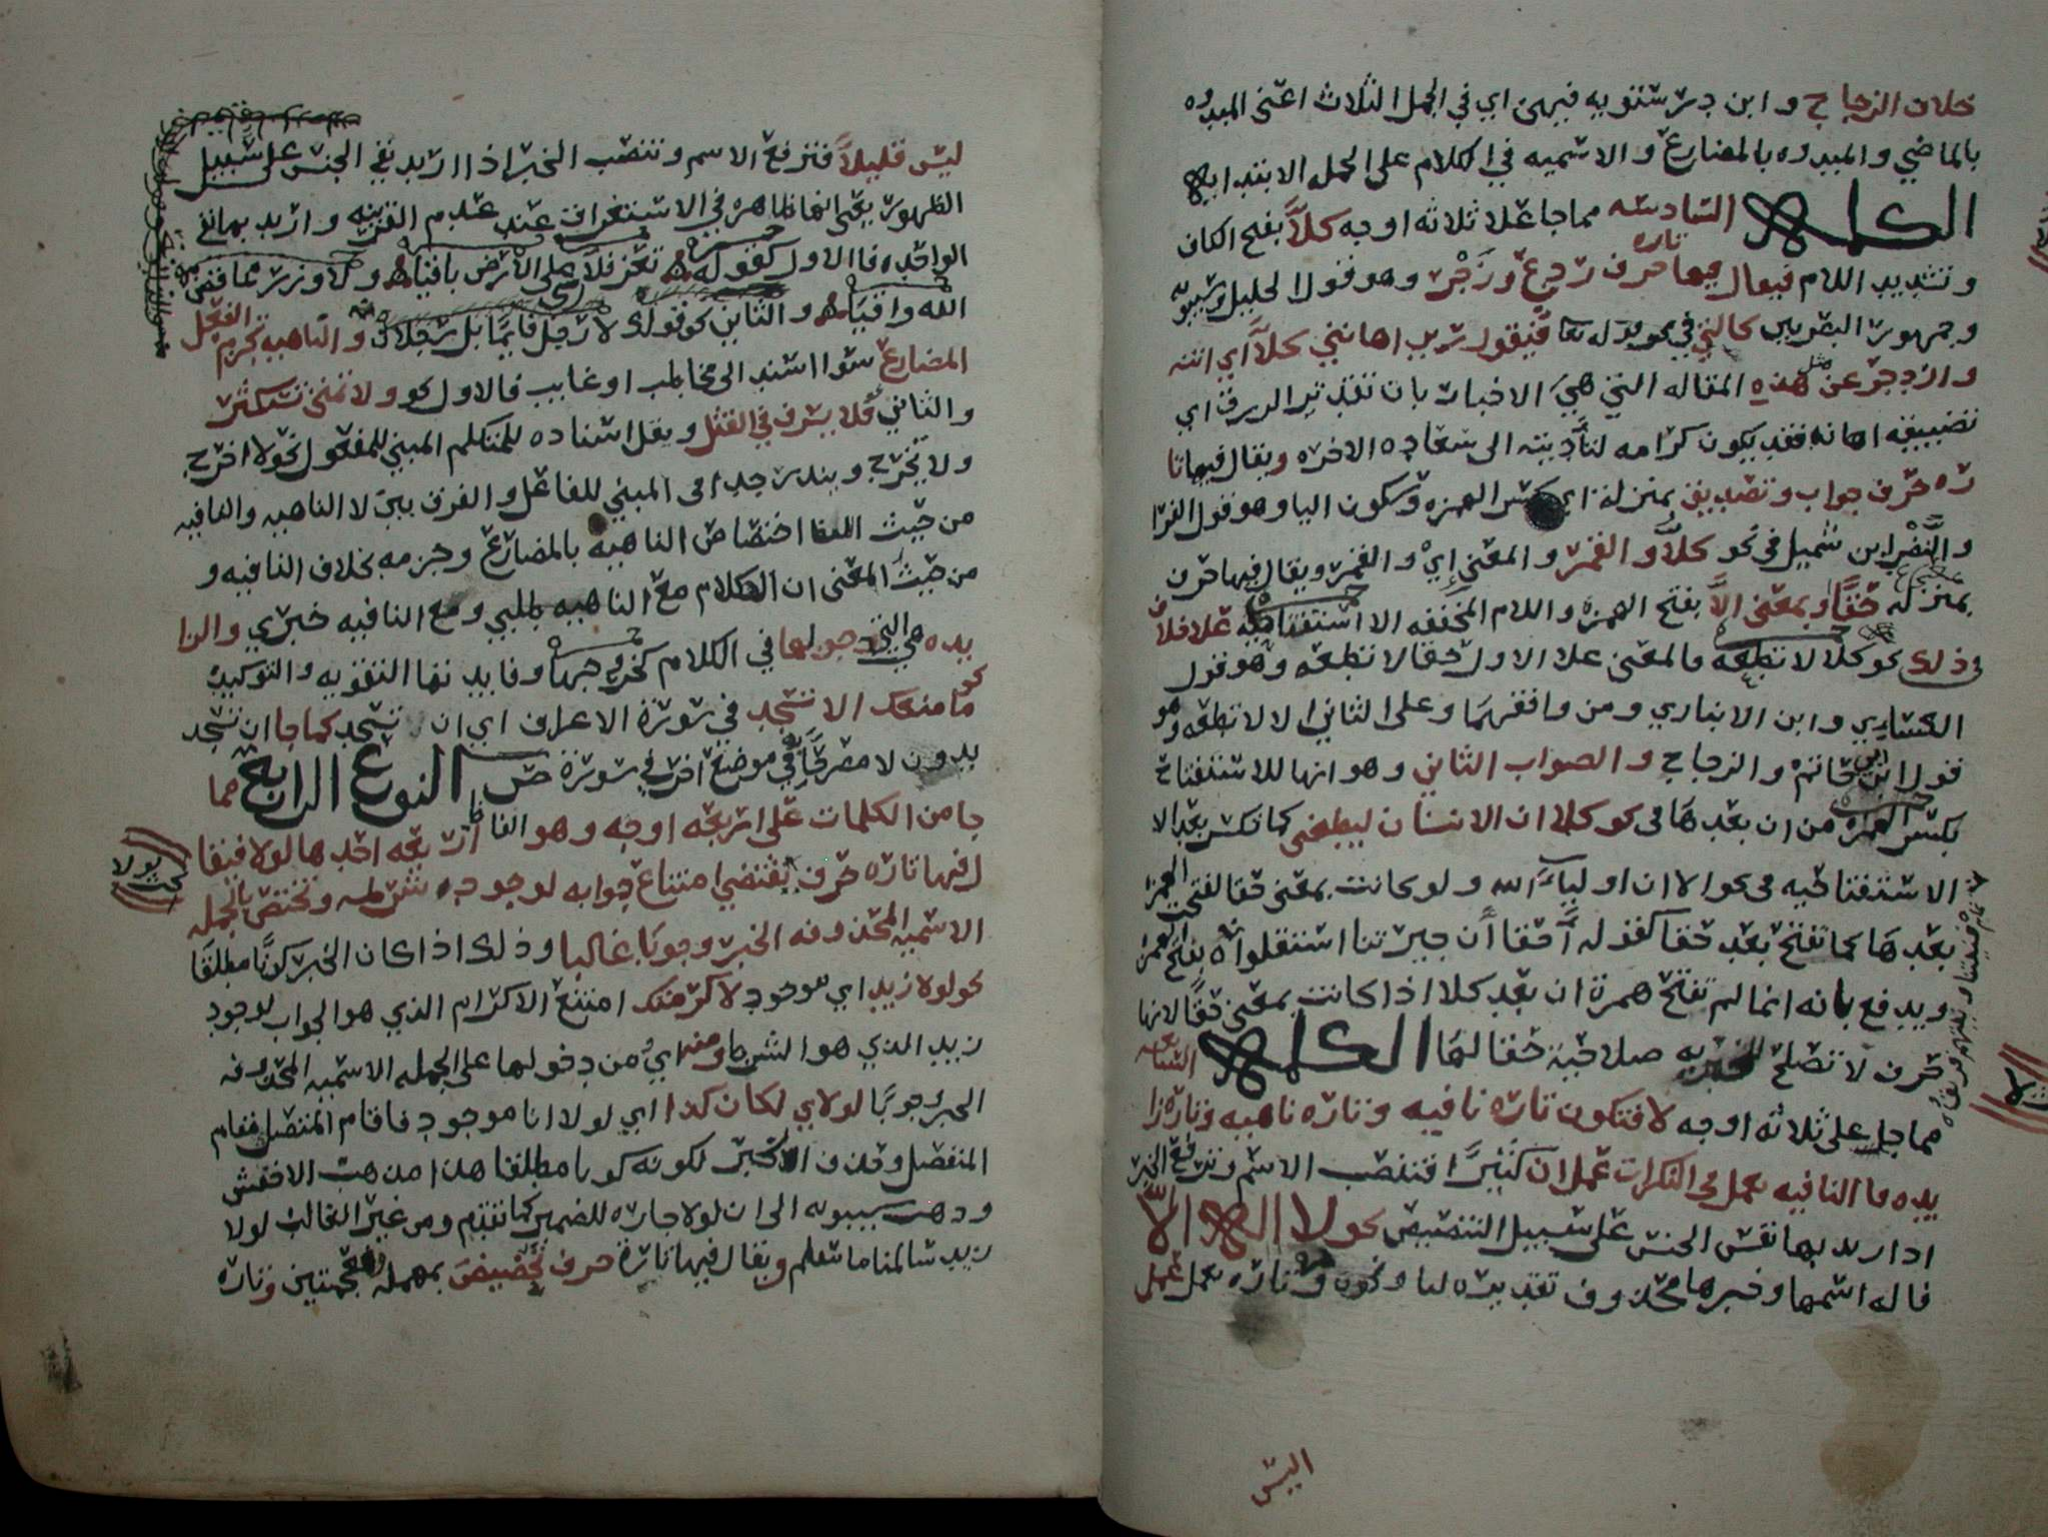 خلافا للزجاج وابن درستويه فيهن اي في الجمل الثلاث اعني المبدوه
بالماضي والمبدوه بالمضارع والاسميه في الكلام على الجمله الابتدائيه
الكلمه السادسه مما جا علا ثلاثه اوجه كلّا بفتح الكاف
وتشديد اللام فيقال فيها تاره حرف ردع وزجر وهو قول الخليل وسيبويه
وجمهور البصريين كالتي في نحو فيقول رب اهانني كلّا اي انته
وانزجر عن مثل هذه المقاله التي هي الاخبار بان تقتير الرزق اي
تضييقه اهانه فقد يكون كرامه لتأديته الى سعاده الاخره ويقال فيها تا
ره حرف جواب وتصديق بمنزلة اي بكسر الهمزه وسكون اليا وهو قول الفرا
والنضر ابن شميل في نحو كلّا والقمر والمعنى إيْ والقمر ويقال فيها حرف
بمنزله حقًّا او بمعنى الاَّ بفتح الهمزه واللام المخففه الا استفتاحيه علا خلاف
في ذلك نحو كلا لا تطعه فالمعنى علا الاول حقا لا تطعه وهو قول
الكسايي وابن الانباري ومن وافقهما وعلى الثاني الا لا تطعه وهو
قول ابي حاتم والزجاج والصواب الثاني وهو انها للاستفتاح
بكسر الهمزه من ان بعدها في نحو كلا ان الانسان ليطغى كما تكسر بعد الا
الاستفتاحيه في نحو الا ان اولياء الله ولو كانت بمعنى حقا لفتحت الهمزة
بعدها كما تفتح بعد حقا كقوله أحقا أن جيرتنا استقلوا بفتح الهمزة
ويدفع بانه انما لم تفتح همزة ان بعد كلا اذا كانت بمعنى حقًّا لانها
حرف لا تصلح للخبريه صلاحية حقا لها الكلمه السابعه
مما جا على ثلاثه اوجه لا فتكون تاره نافيه وتاره ناهيه وتاره زا
يده فا النافيه تعمل في النكرات عمل ان كثيرًا فتنصب الاسم وترفع الخبر
اذا اريد بها نفي الجنس على سبيل التنصيص نحو لا اله الا الله
فاله اسمها وخبرها محذوف تقديره لنا ونحوه وتاره تعمل عمل
ليس
ليس قليلاً فترفع الاسم وتنصب الخبر اذا اريد نفي الجنس على سبيل
الظهور يعني انها ظاهره في الاستغراق عند عدم القرينه واريد بها نفي
الواحد فا الاول كقوله تعز فلا شي على الارض باقيا ولا وزر مما قضى
الله واقيا والثاني نحو قولك لا رجل قايمًا بل رجلان والناهيه تجزم الفعل
المضارع سوا اسند الى مخاطب او غايب فالاول نحو ولا تمنن تستكثر
والثاني فلا يسرف في القتل ويقل اسناده للمتكلم المبني للمفعول نحو لا اخرج
ولا نخرج ويندر جدا في المبني للفاعل والفرق بين لا الناهيه والنافيه
من حيث اللفظ اختصاص الناهيه بالمضارع وجزمه بخلاف النافيه و
من حيث المعنى ان الكلام مع الناهيه طلبي ومع النافيه خبري والزا
يده هي التي دخولها في الكلام كخروجها وفايدتها التقويه والتوكيد
نحو ما منعك الا تسجد في سورة الاعراف اي ان تسجد كما جا ان تسجد
بدون لا مصرحًا به في موضع اخر في سورة ص النوع الرابع مما
جا من الكلمات على اربعه اوجه وهو الفاظ اربعه احدها لولا فيقا
ل فيها تاره حرف يقتضي امتناع جوابه لوجود شرطه وتختص بالجمله
الاسميه المحذوفه الخبر وجوبًا غالبا وذلك اذا كان الخبر كونًا مطلقًا
نحو لولا زيد اي موجود لاكرمتك امتنع الاكرام الذي هو الجواب لوجود
زيد الذي هو الشرط ومنه اي من دخولها على الجمله الاسميه المحذوفه
الخبر وجوبًا لولاي لكان كذا اي لولا انا موجود فاقام المتصل مقام
المنفصل وحذف الخبر لكونه كونا مطلقا هذا مذهب الاخفش
وذهب سيبويه الى ان لولا جاره للضمير كما تقدم ومن غير الغالب لولا
زيد سالمنا ما سلم ويقال فيها تارة حرف تحضيض بمهمله ومعجمتين وتاره
بحث لولا
بحث لا